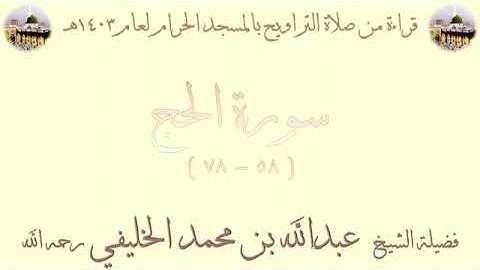 قراءة من صلاة التراويح بالمسجد الحرام لعام ١٤٠٣هـ
سورة الحج
( ٥٨ - ٧٨ )
فضيلة الشيخ عبدالله بن محمد الخليفي رحمه الله